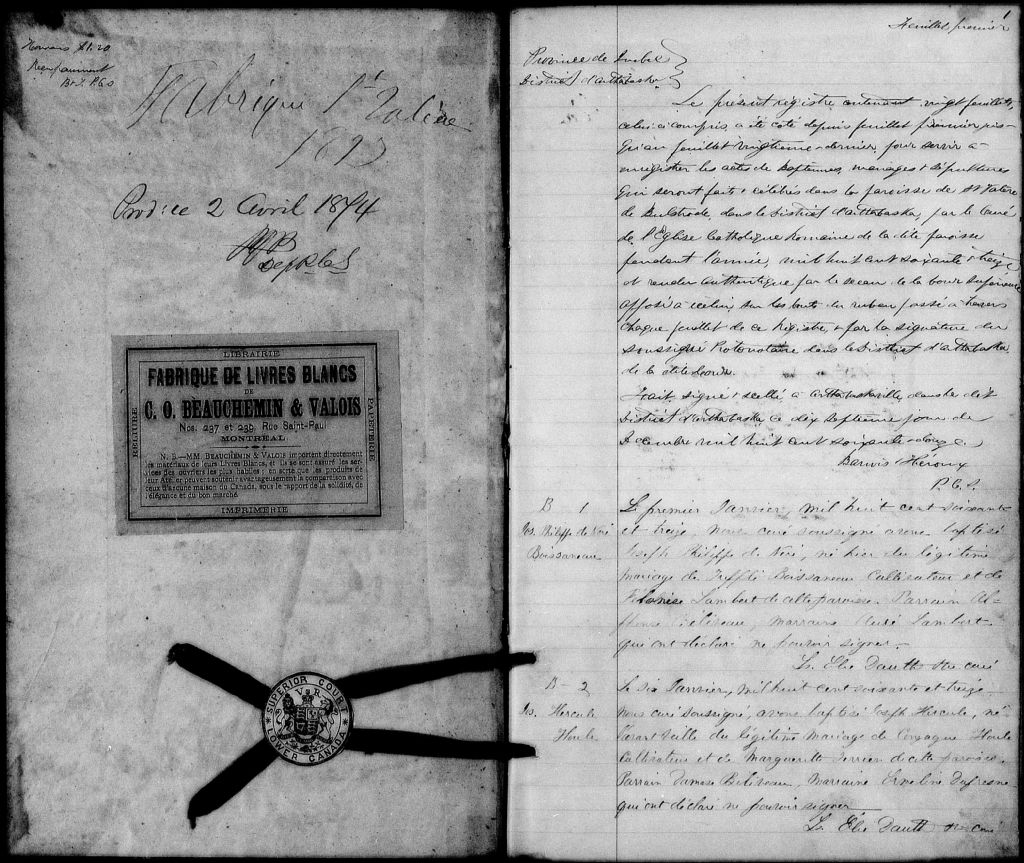 Fabrique St Valère
1873
Produce 2 Avril 1874
LIBRAIRIE
FABRIQUE DE LIVRES BLANCS
DE
C. O. BEAUCHEMIN & VALOIS
Nos. 237 et 239, Rue Saint-Paul
MONTREAL
N. B.—MM. BEAUCHEMIN & VALOIS importent directement
les matériaux de leurs Livres Blancs, et ils se sont assuré les ser-
vices des ouvriers les plus habiles; en sorte que les produits de
leur Atelier peuvent soutenir avantageusement la comparaison avec
ceux d'aucune maison du Canada, sous le rapport de la solidité, de
l'élégance et du bon marché.
IMPRIMERIE
RELIURE
PAPETERIE
SUPERIOR COURT
V R
LOWER CANADA
1
Feuillet premier
Province de Québec
District d'arthabaska
Le présent régistre contenant vingt feuillets,
celui ci compris, a été coté depuis feuillet premier jus-
qu'au feuillet vingtième & dernier, pour servir à
enregistrer les actes de Baptêmes, mariages & sépultures
qui seront faits & célébrés dans la paroisse de St Valère
de Bulstrode, dans le District d'arthabaska, par le Curé
de l'Eglise Catholique Romaine de la dite paroisse
pendant l'année, mil huit cent soixante & treize
et rendu authentique par le sceau de la Cour Supérieure
apposé à celui, sur les bouts du ruban passé à travers
chaque feuillet de ce Régistre, & par la signature du
soussigné Protonotaire dans le District d'arthabaska
de la dite Cour.
Fait, signé & scellé, à arthabaskaville, dans le dit
District d'arthabaska ce dix septième jour de
Décembre mil huit cent soixante & douze.
Barwis & Héroux
P. C. S.
B 1
Jos. Philippe de Néri
Boissaneau
Le premier Janvier, mil huit cent soixante
et treize, nous curé soussigné avons baptisé
Joseph Philippe de Néri, né hier du légitime
mariage de Trefflé Boissaneau Cultivateur et de
Lambert de cette paroisse. Parrain Al-
phonse Béliveau, marraine Lambert
qui ont déclaré ne pouvoir signer.
Ls. Elie Dauth Ptre curé
B - 2
Jos. Hercule
Houle
Le six Janvier, mil huit cent soixante et treize
nous curé soussigné, avons baptisé Joseph Hercule, né
l'avant veille du légitime mariage de Houle
Cultivateur et de Marguerite Therrien de cette paroisse.
Parrain Damase Béliveau, Marraine Ermeline Dufresne
qui ont déclaré ne pouvoir signer
Ls. Elie Dauth Ptre curé